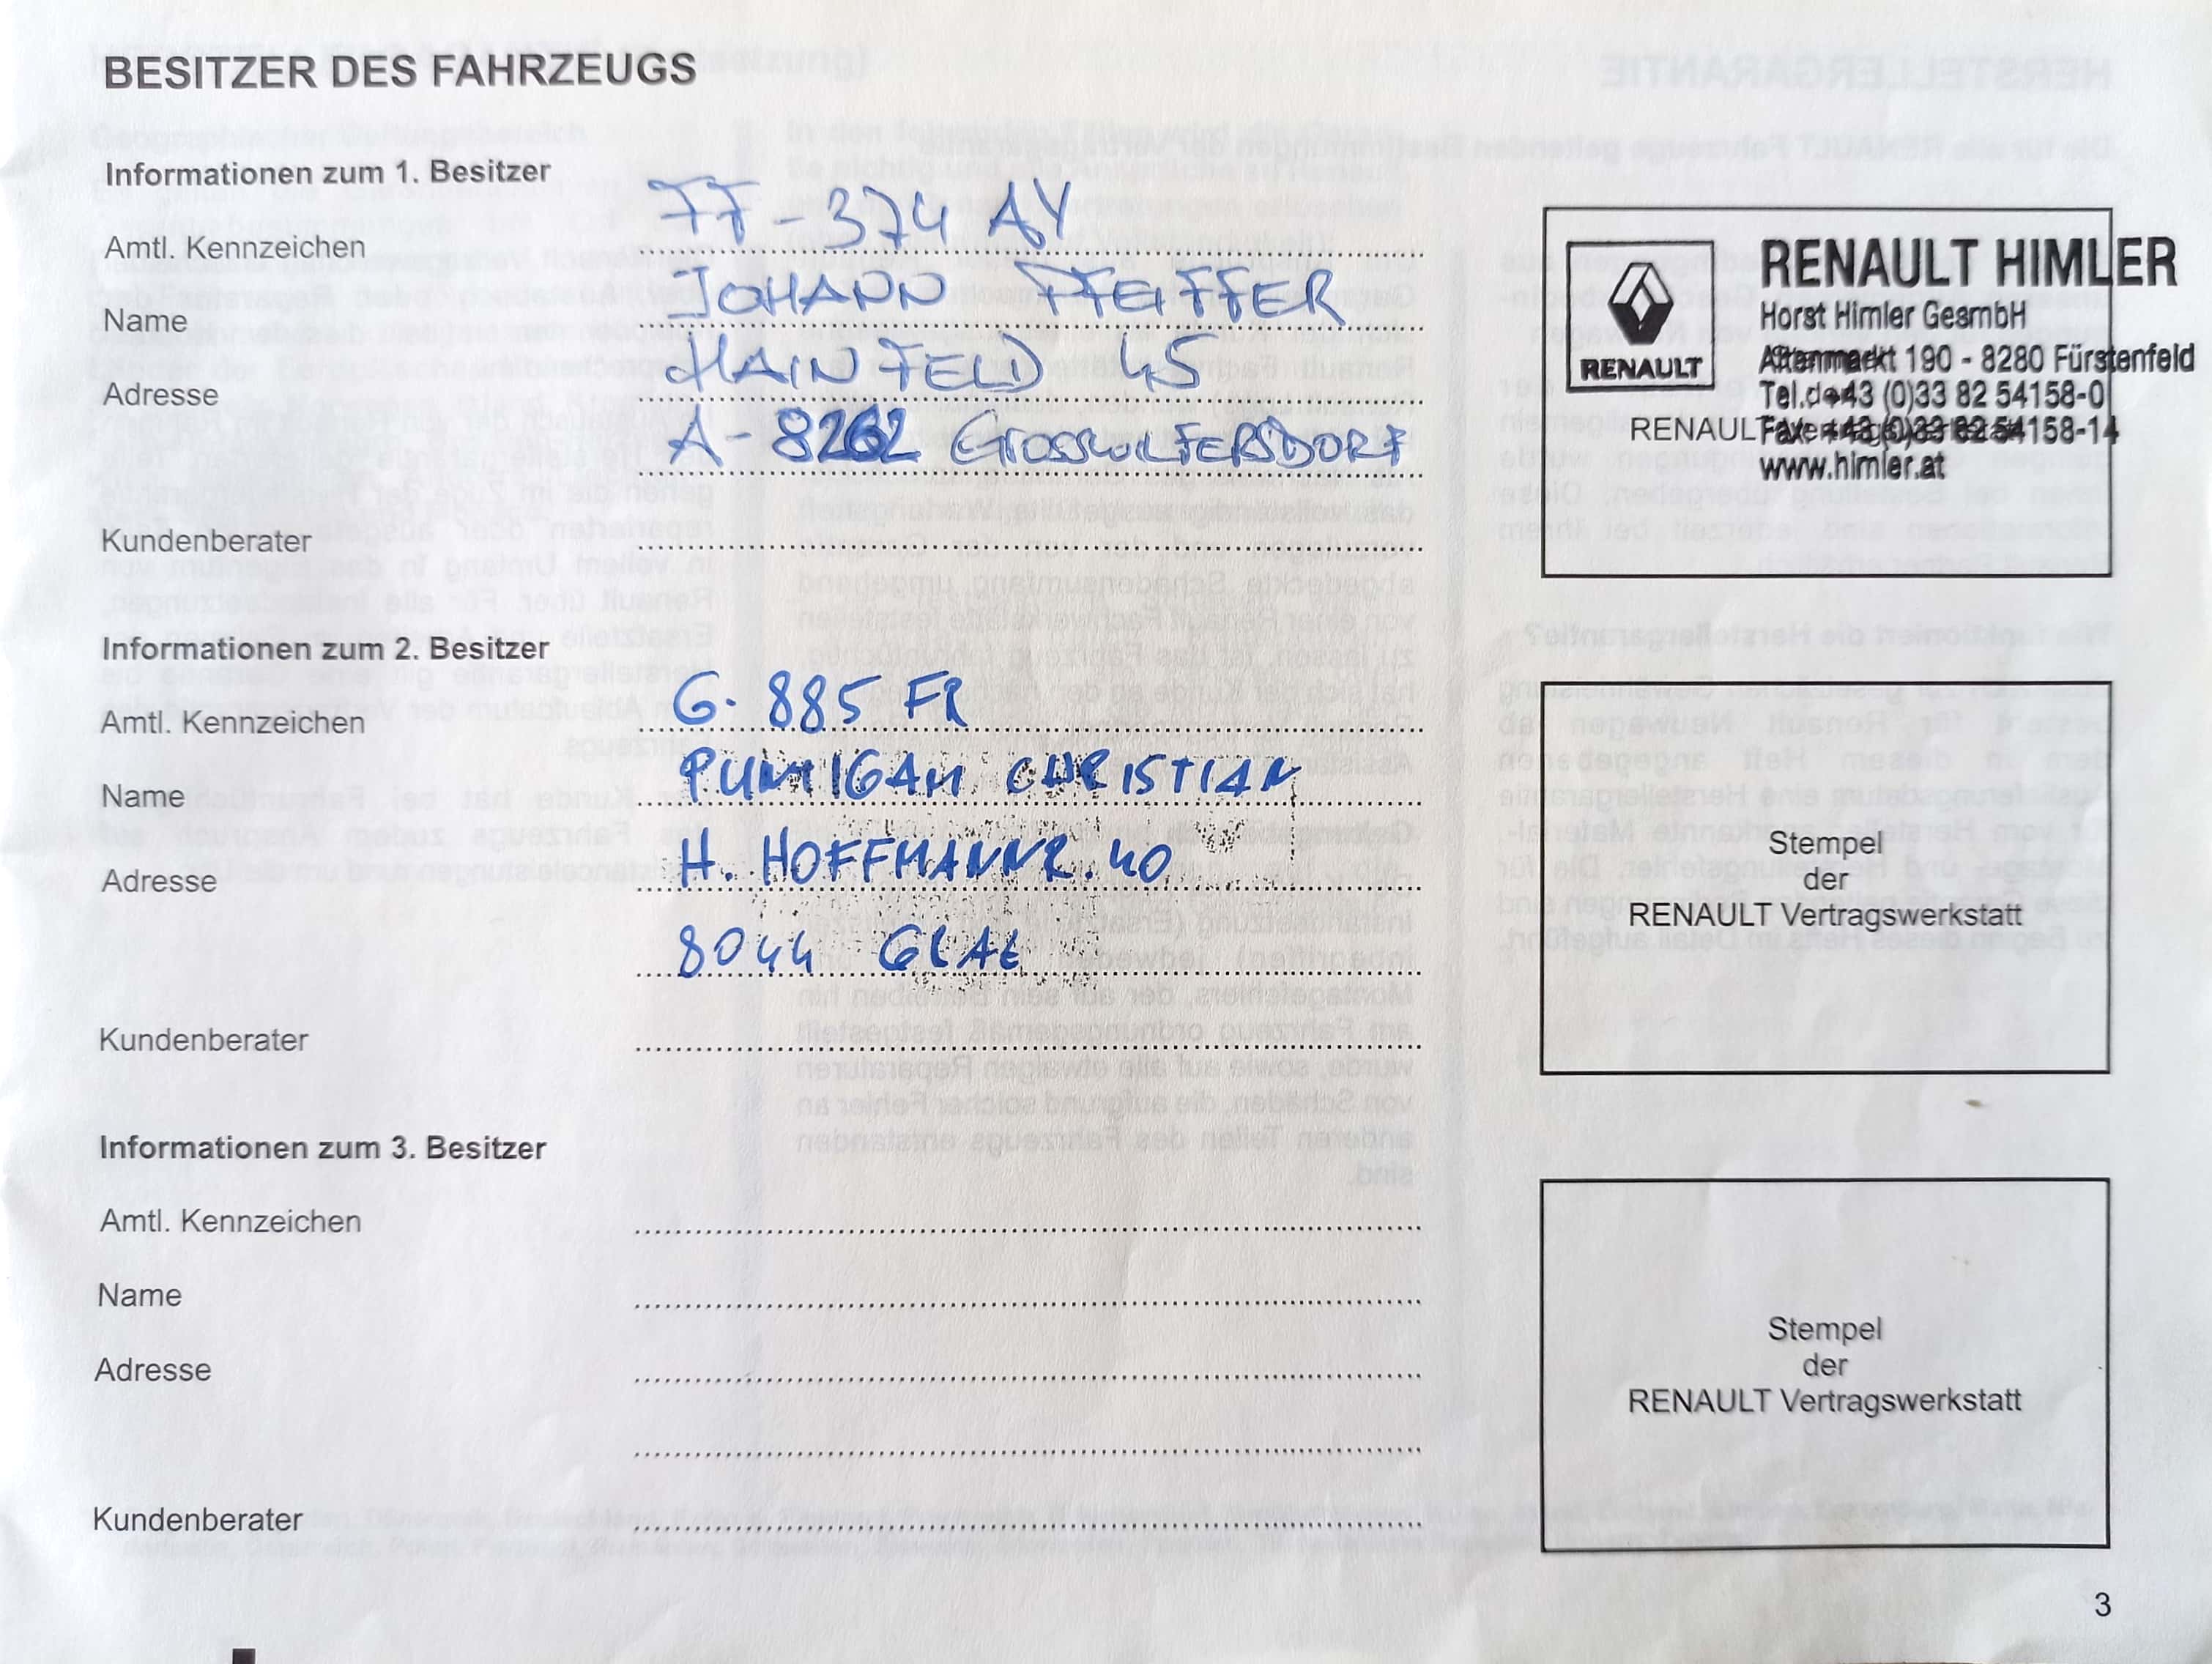 BESITZER DES FAHRZEUGS
Informationen zum 1. Besitzer
Amtl. Kennzeichen FF-374 AY
Name JOHANN PFEIFFER
Adresse HAINFELD 45
A-8262 GROSSWILFERSDORF
Kundenberater
RENAULT
RENAULT HIMLER
Horst Himler GesmbH
Altenmarkt 190 - 8280 Fürstenfeld
Tel. +43 (0)33 82 54158-0
RENAULT
Fax: +43 (0)33 82 54158-14
www.himler.at
Informationen zum 2. Besitzer
Amtl. Kennzeichen G. 885 FR
Name PUNTIGAM CHRISTIAN
Adresse H. HOFFMANNR. 40
8044 GRAZ
Kundenberater
Stempel
der
RENAULT Vertragswerkstatt
Informationen zum 3. Besitzer
Amtl. Kennzeichen
Name
Adresse
Kundenberater
Stempel
der
RENAULT Vertragswerkstatt
3